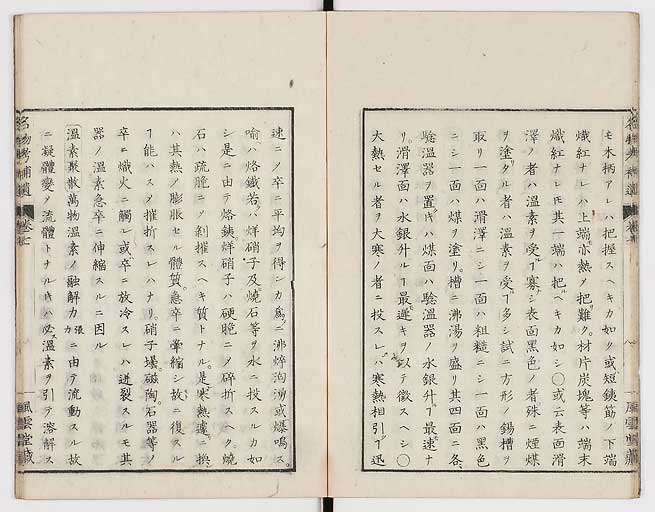 モ木柄アレハ把握スヘキカ如ク或短鉄筋ノ下端
熾紅ナレハ上端亦熱ヲ把難ク材片炭塊等ハ端末
熾紅ナレ𪜈其一端ハ把ヘキカ如シ〇或云表面滑
澤ノ者ハ温素ヲ受ルヿ寡シ表面黒色ノ者殊ニ煙煤
ヲ塗タル者ハ温素ヲ受ルヿ多シ試ニ方形ノ錫槽ヲ
取リ一面ハ滑澤ニシ一面ハ粗糙ニシ一面ハ黒色
ニシ一面ハ煤ヲ塗リ槽ニ沸湯ヲ盛リ其四面ニ各
験温器ヲ置キハ煤面ハ験温器ノ水銀升ルヿ最速ナ
リ滑澤面ハ水銀升ルヿ最遅キヲ以テ徴スヘシ〇
大熱セル者ヲ大寒ノ者ニ投スレハ寒熱相引ヿ迅
名物考補遺 巻七 八 風雲堂蔵
速ニノ卒ニ平均ヲ得ンカ為ニ沸焠洶湧或爆鳴ス
喩ハ烙鐵若ハ烊硝子及焼石等ヲ水ニ投スルカ如
シ是ニ由テ烙鐵烊硝子ハ硬脆ニノ碎折スヘク焼
石ハ疏脆ニノ剝摧スヘキ質トナル是寒熱遽ニ換
ハ其熱ノ膨脹セル體質急卒ニ攣縮シ故ニ復スル
ヿ能ハスノ摧折スレハナリ硝子壜磁陶石器等ノ
卒ニ熾火ニ觸レ或卒ニ放冷スレハ迸裂スルモ其
器ノ温素急卒ニ伸縮スルニ因ル
温素聚散萬物温素ノ融解力張力ニ由テ流動スル故
ニ凝體變ノ流體トナルキハ必温素ヲ引テ溶解ス
名物考補遺 巻七 風雲堂蔵